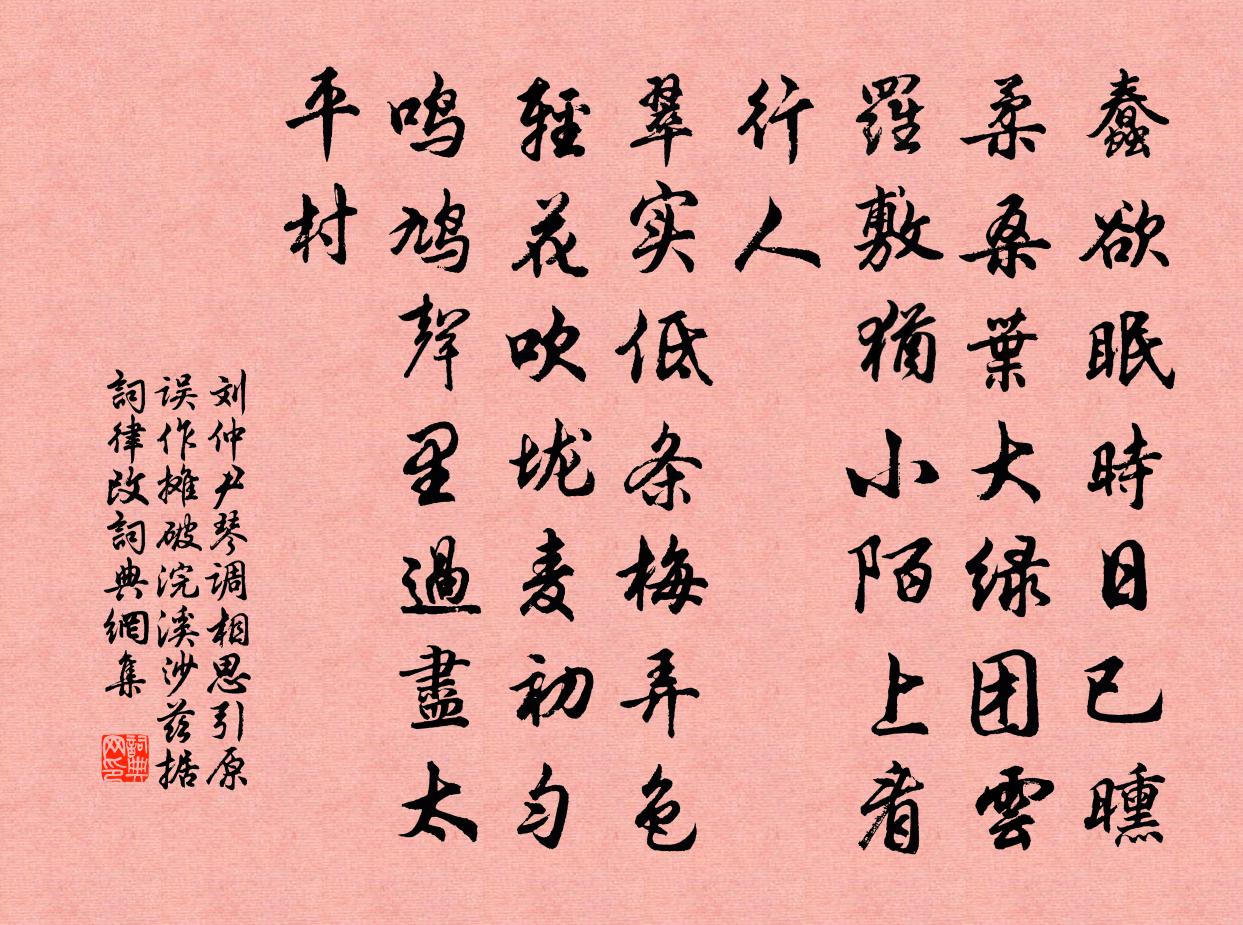 蠶欲眠時日已曛
柔桑葉大绿团雲
羅敷猶小陌上看
行人
翠实低条梅弄色
輕花吹垅麦初匀
鸣鸠聲里過盡太
平村
刘仲尹琴调相思引原
误作摊破浣溪沙兹据
詞律改詞典網集
詞典网印